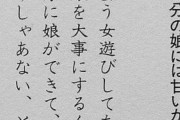 分の娘には甘いか
う女遊びして
を大事にする
に娘ができて、
しゃあない、